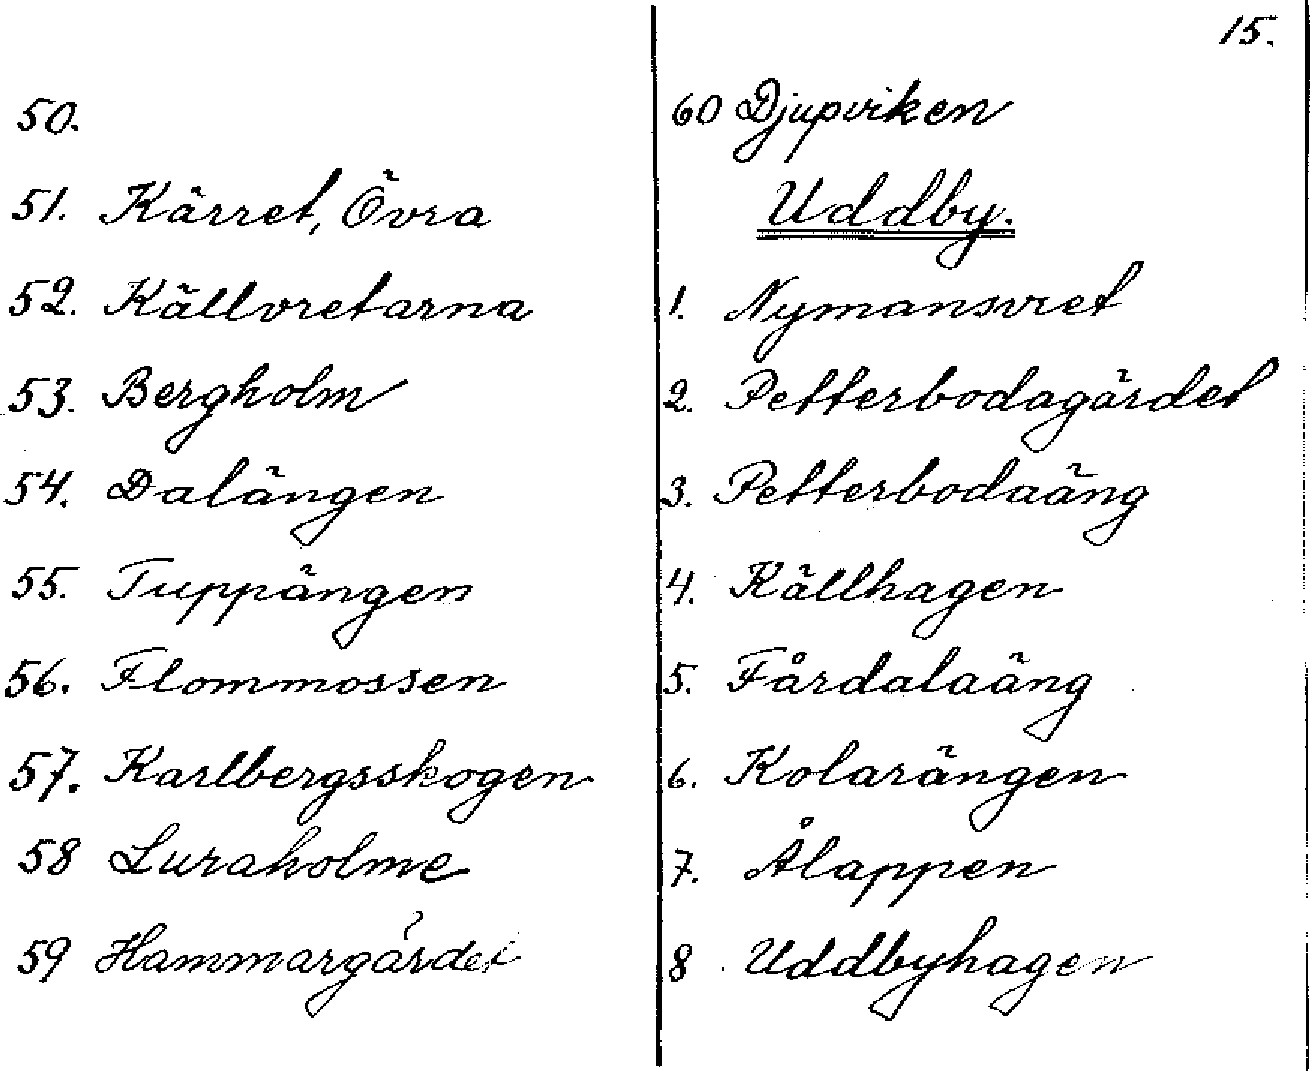 15.
50.
51. Kärret, Övra
52. Källvretarna
53. Bergholm
54. Dalängen
55. Tuppängen
56. Flommossen
57. Karlbergsskogen
58 Luraholme
59 Hammargärdet
60 Djupviken
Uddby.
1. Nymansvret
2. Petterbodagärdet
3. Petterbodaäng
4. Källhagen
5. Fårdalaäng
6. Kolarängen
7. Ålappen
8 Uddbyhagen